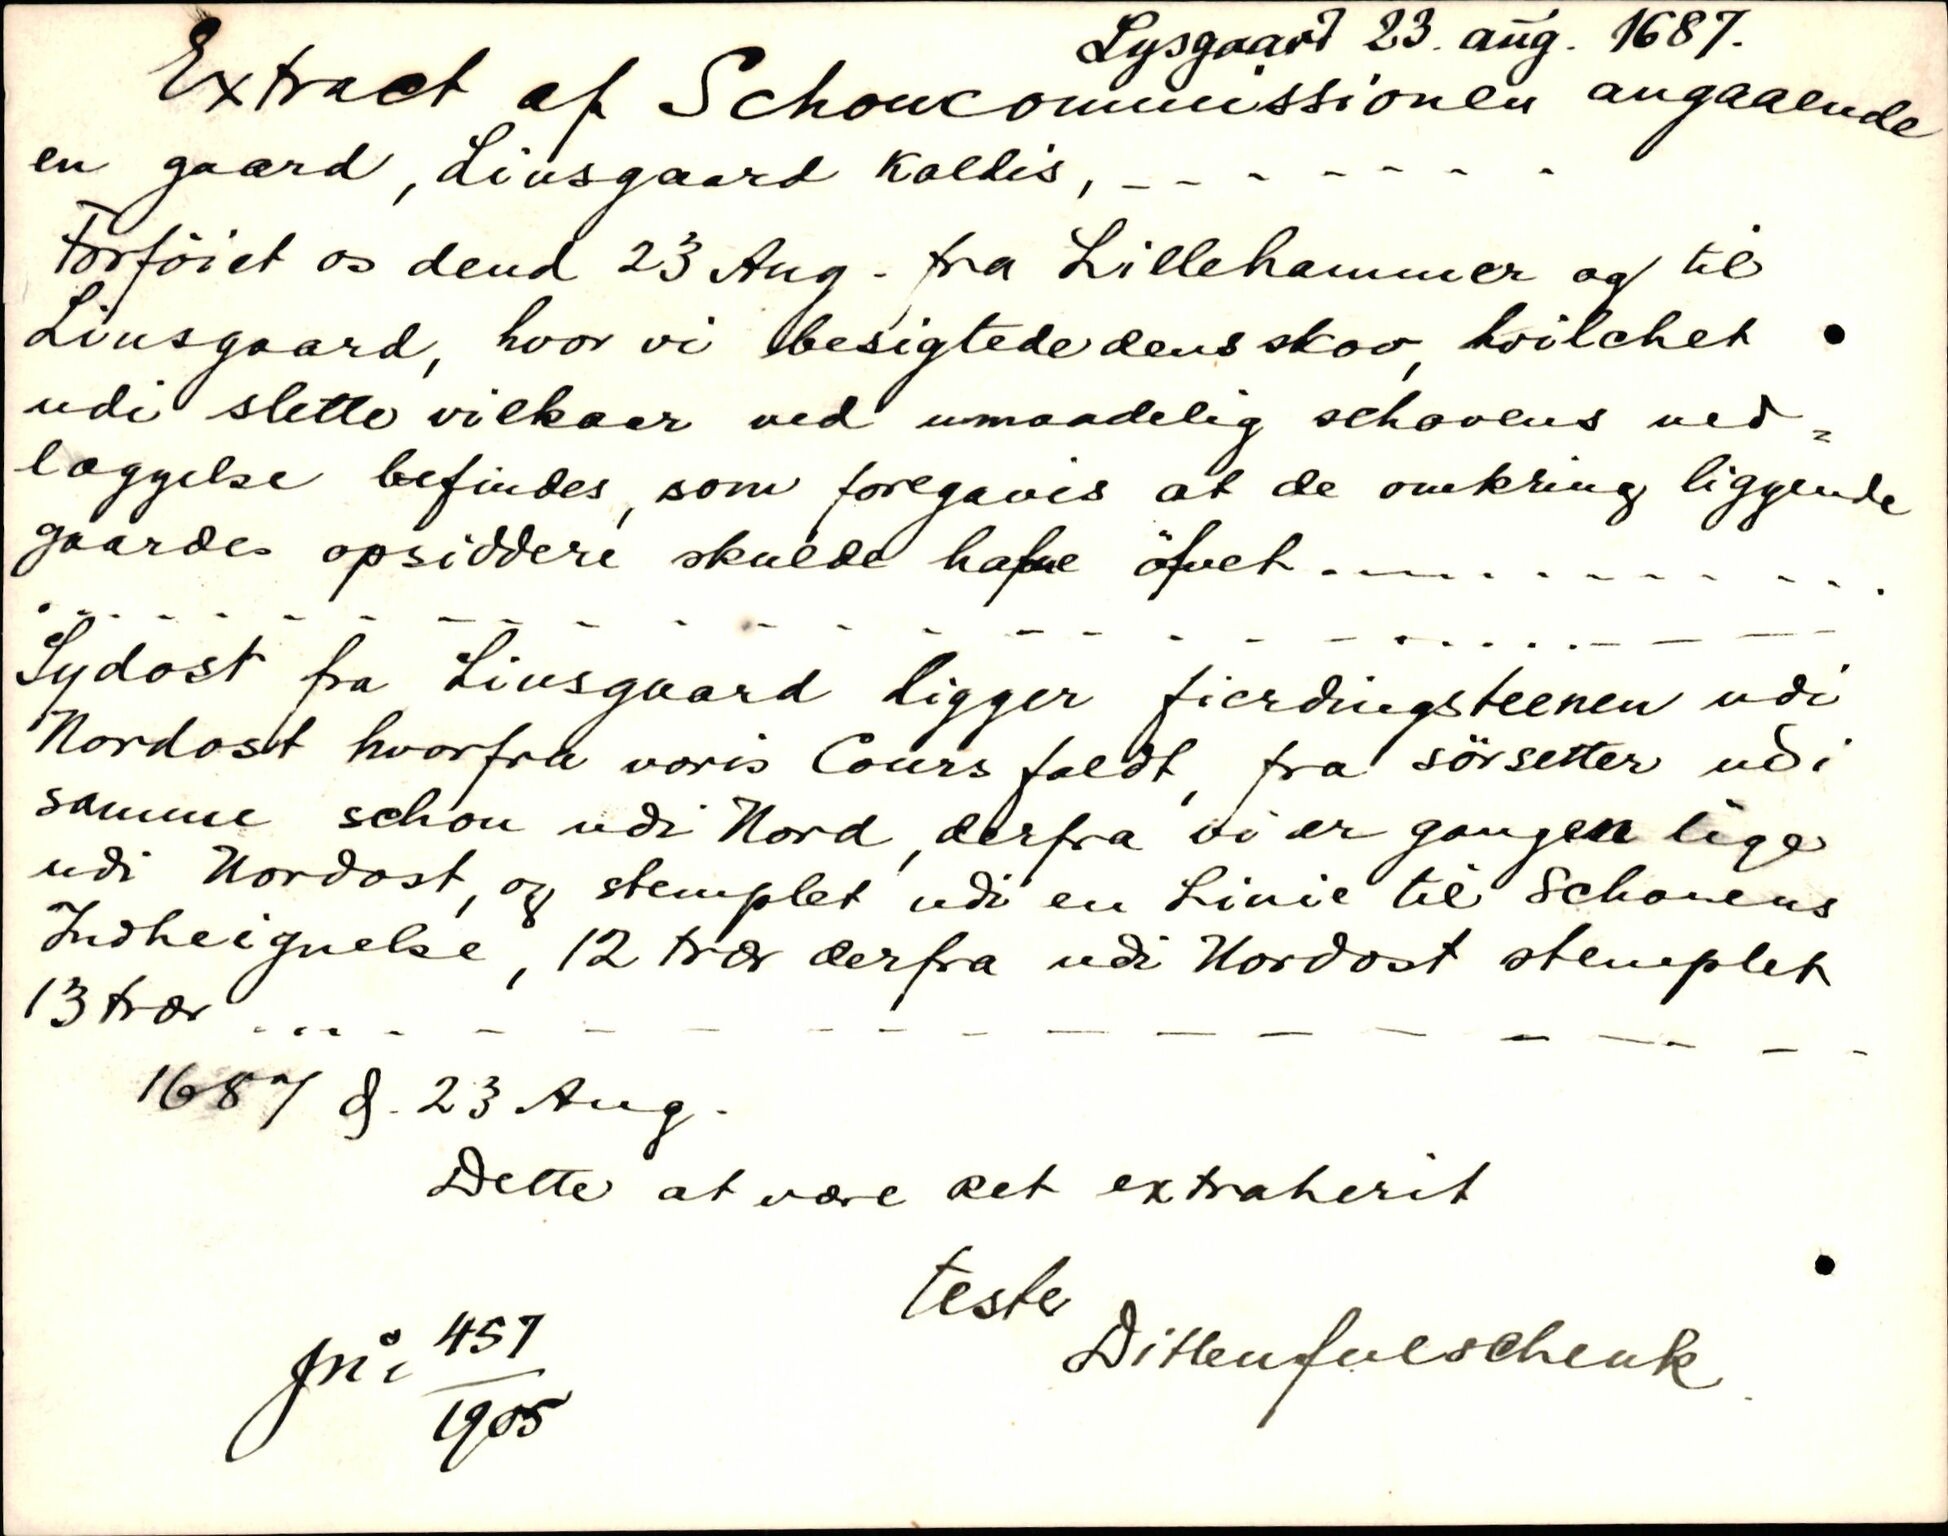 Lysgaard 23. aug. 1687.
Extract af Schoucommissionen angaaende
en gaard, Liusgaard kaldis, - - - - - - -
Forföiet os dend 23 Aug. fra Lillehammer og til
Liusgaard, hvor vi besigtede dens skov, hvilchet
udi slette vilkaar ved umaadelig schovens ned=
læggelse befindes, som foregavis at de omkring liggende
gaardes opsiddere skulde hafue öfvet - - - - - - - -
- - - - - - - - - - - - - - - - - - - -
Sydost fra Liusgaard ligger fierdingsteenen udi
Nordost hvorfra voris Cours faldt, fra sörsetter udi
samme schou udi Nord, derfra vi er gangen lige
udi Nordost, og stemplet udi en Linie til Schouens
Indheignelse, 12 trær derfra udi Nordost stemplet
13 trær - - - - - - - - - - - - - - - -
1687 d. 23 Aug.
Dette at være ret extraherit
teste
Dittenfuelschenk
457
1905